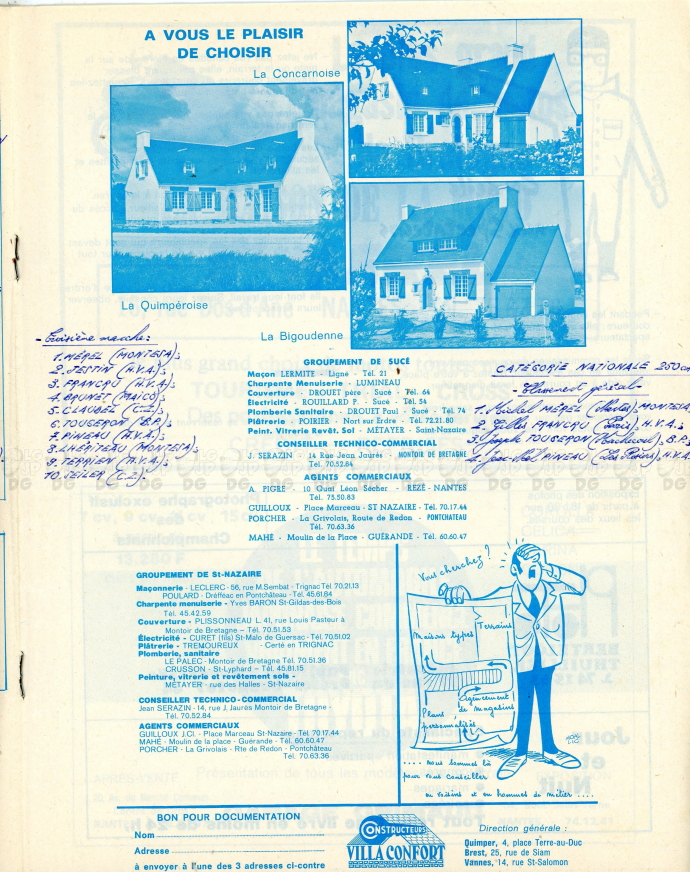 A VOUS LE PLAISIR
DE CHOISIR
La Concarnoise
La Quimpéroise
La Bigoudenne
- Troisième manche :
1. MEREL (MONTESA);
2. JESTIN (H.V.A);
3. FRANCRU (H.V.A);
4. BRUNET (MAICO);
5. CLAUDEL (C.Z.);
6. TOUSERON (B.P.);
7. PINEAU (H.V.A.);
8. LHÉRITEAU (MONTESA);
9. TERRIEN (H.V.A.);
10. (C.Z.).
GROUPEMENT DE SUCÉ
Maçon LERMITE - Ligné - Tél. 21
Charpente Menuiserie - LUMINEAU
Couverture - DROUET père - Sucé - Tél. 64
Électricité - ROUILLARD P. - Sucé - Tél. 54
Plomberie Sanitaire - DROUET Paul - Sucé - Tél. 74
Plâtrerie - POIRIER - Nort sur Erdre - Tél. 72.21.80
Peint. Vitrerie Revêt. Sol - METAYER - Saint-Nazaire
CONSEILLER TECHNICO-COMMERCIAL
J. SERAZIN - 14 Rue Jean Jaurés - MONTOIR DE BRETAGNE
Tél. 70.52.84
AGENTS COMMERCIAUX
A. PIGRE - 10 Quai Léon Sécher - REZÉ - NANTES
Tél. 75.50.83
GUILLOUX - Place Marceau - ST NAZAIRE - Tél. 70.17.44
PORCHER - La Grivolais, Route de Redon - PONTCHATEAU
Tél. 70.63.36
MAHÉ - Moulin de la Place - GUÉRANDE - Tél. 60.60.47
CATÉGORIE NATIONALE 250
- Classement général -
1. Michel MEREL (Nantes), MONTESA
2. Gilles FRANCRU (Paris), H.V.A.;
3. Joseph TOUSERON B.P.
4. PINEAU H.V.A.
GROUPEMENT DE St-NAZAIRE
Maçonnerie - LECLERC - 56, rue M.Sembat - Trignac Tél 70.21.13
POULARD - Drefféac en Pontchâteau - Tél. 45.61.84
Charpente menuiserie - Yves BARON St-Gildas-des-Bois
Tél. 45.42.59
Couverture - PLISSONNEAU L. 41, rue Louis Pasteur à
Montoir de Bretagne - Tél. 70.51.53
Électricité - CURET (fils) St-Malo de Guersac - Tél. 70.51.02
Plâtrerie - TREMOUREUX - Certé en TRIGNAC
Plomberie, sanitaire
LE PALEC - Montoir de Bretagne Tél. 70.51.36
CRUSSON - St-Lyphard - Tél. 45.81.15
Peinture, vitrerie et revêtement sols -
MÉTAYER - rue des Halles - St-Nazaire
CONSEILLER TECHNICO-COMMERCIAL
Jean SERAZIN - 14, rue J. Jaurès Montoir de Bretagne -
Tél. 70.52.84
AGENTS COMMERCIAUX
GUILLOUX J.Cl. - Place Marceau St-Nazaire - Tél. 70.17.44
MAHÉ - Moulin de la place - Guérande - Tél. 60.60.47
PORCHER - La Grivolais - Rte de Redon - Pontchâteau
Tél. 70.63.36
Vous cherchez ?
Maisons types
Terrains
Agencement
de magasins
Plans
personnalisés
.... nous sommes là
pour vous conseiller
en voisins et en hommes de métier ....
BON POUR DOCUMENTATION
Nom
Adresse
à envoyer à l'une des 3 adresses ci-contre
CONSTRUCTEURS
VILLA CONFORT
Direction générale :
Quimper, 4, place Terre-au-Duc
Brest, 25, rue de Siam
Vannes, 14, rue St-Salomon